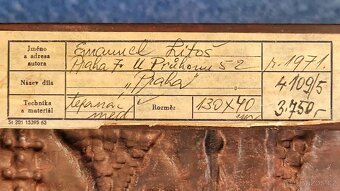 Jméno a adresa autora Emanuel Litoš
Praha 7. U Průhonu 52 r. 1971.
Název díla „Praha" 4109/5
Technika a materiál tepaná měď Rozměr 130x40 cm 3.750,-
St 201 15395 63